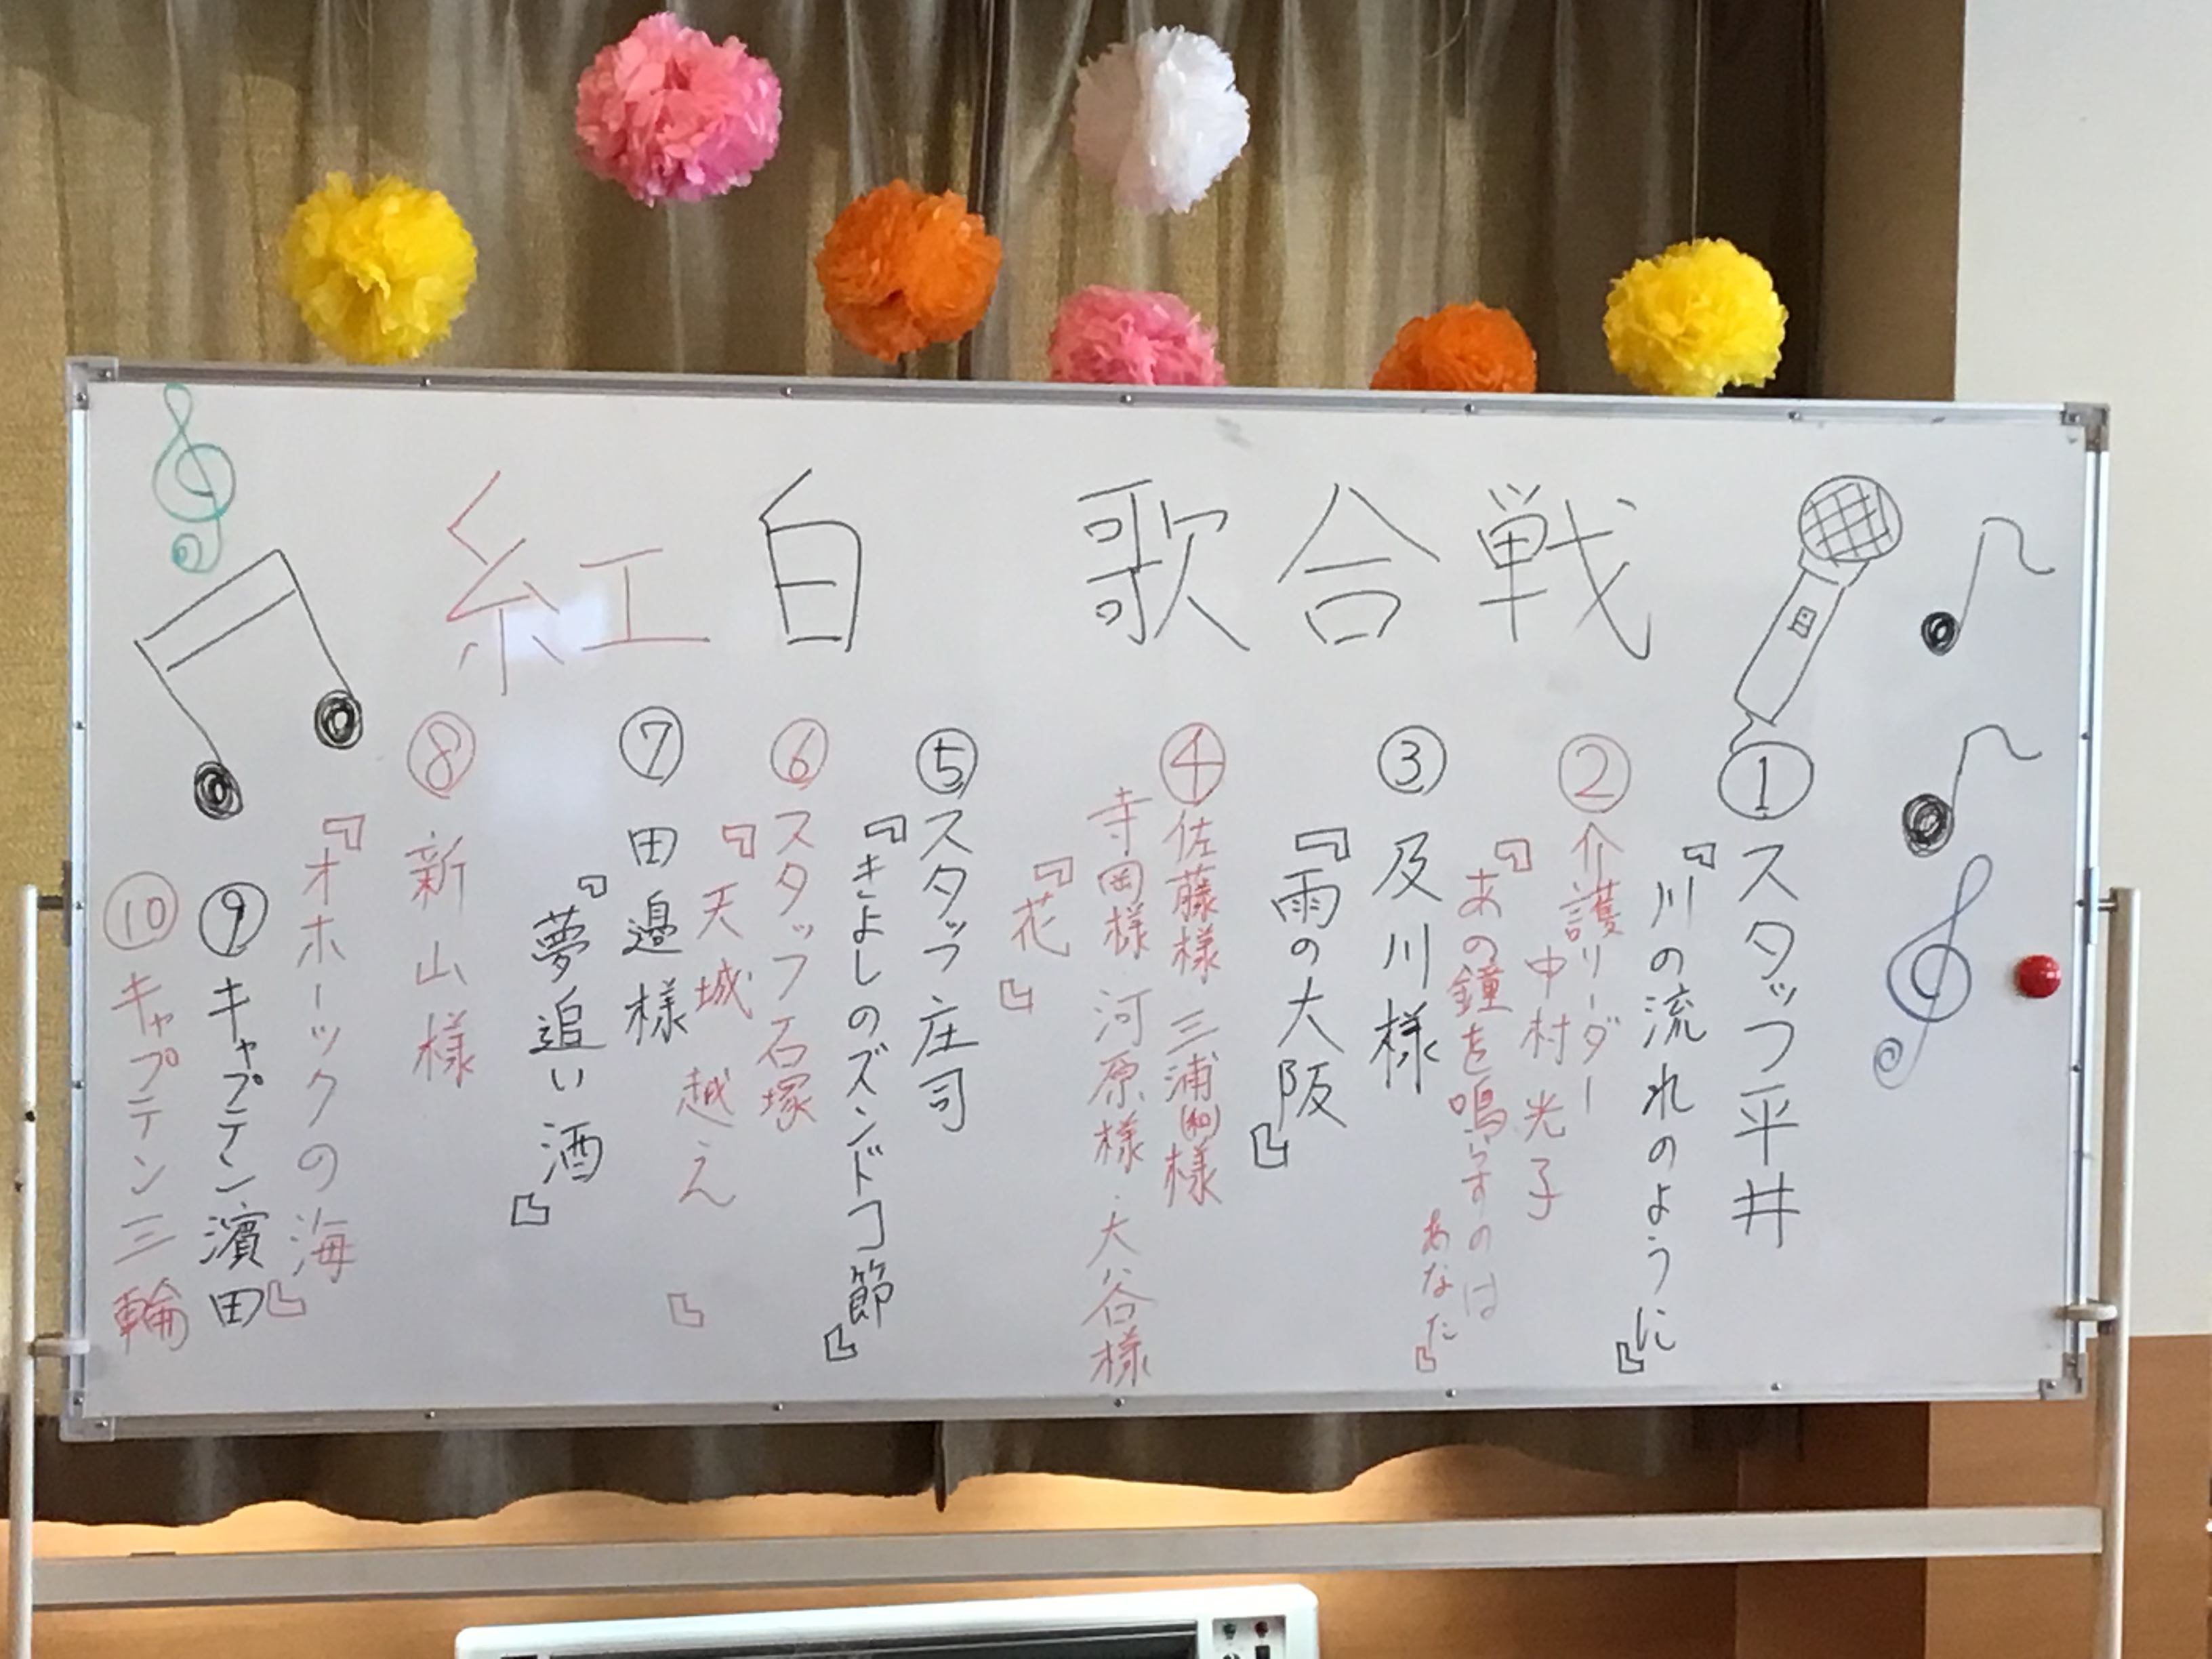 紅白 歌合戦
① スタッフ平井
『川の流れのように』
② 介護リーダー
中村光子
『あの鐘を鳴らすのは
あなた』
③ 及川様
『雨の大阪』
④ 佐藤様 三浦(和)様
寺岡様 河原様・大谷様
『花』
⑤ スタッフ庄司
『きよしのズンドコ節』
⑥ スタッフ石塚
『天城越え』
⑦ 田邉様
『夢追い酒』
⑧ 新山様
『オホーツクの海』
⑨ キャプテン濱田
⑩ キャプテン三輪